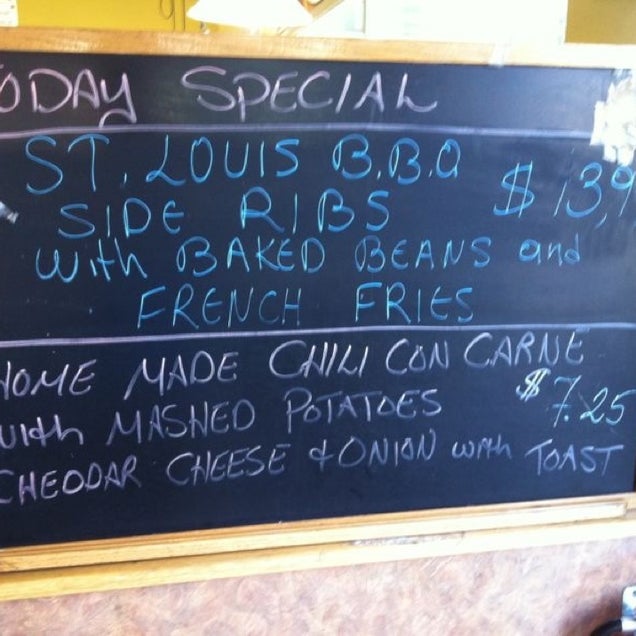 ODAY SPECIAL
ST. LOUIS B.B.Q
SIDE RIBS $13.9
with BAKED BEANS and
FRENCH FRIES
HOME MADE CHILI CON CARNE
with MASHED POTATOES $7.25
CHEDDAR CHEESE & ONION with TOAST